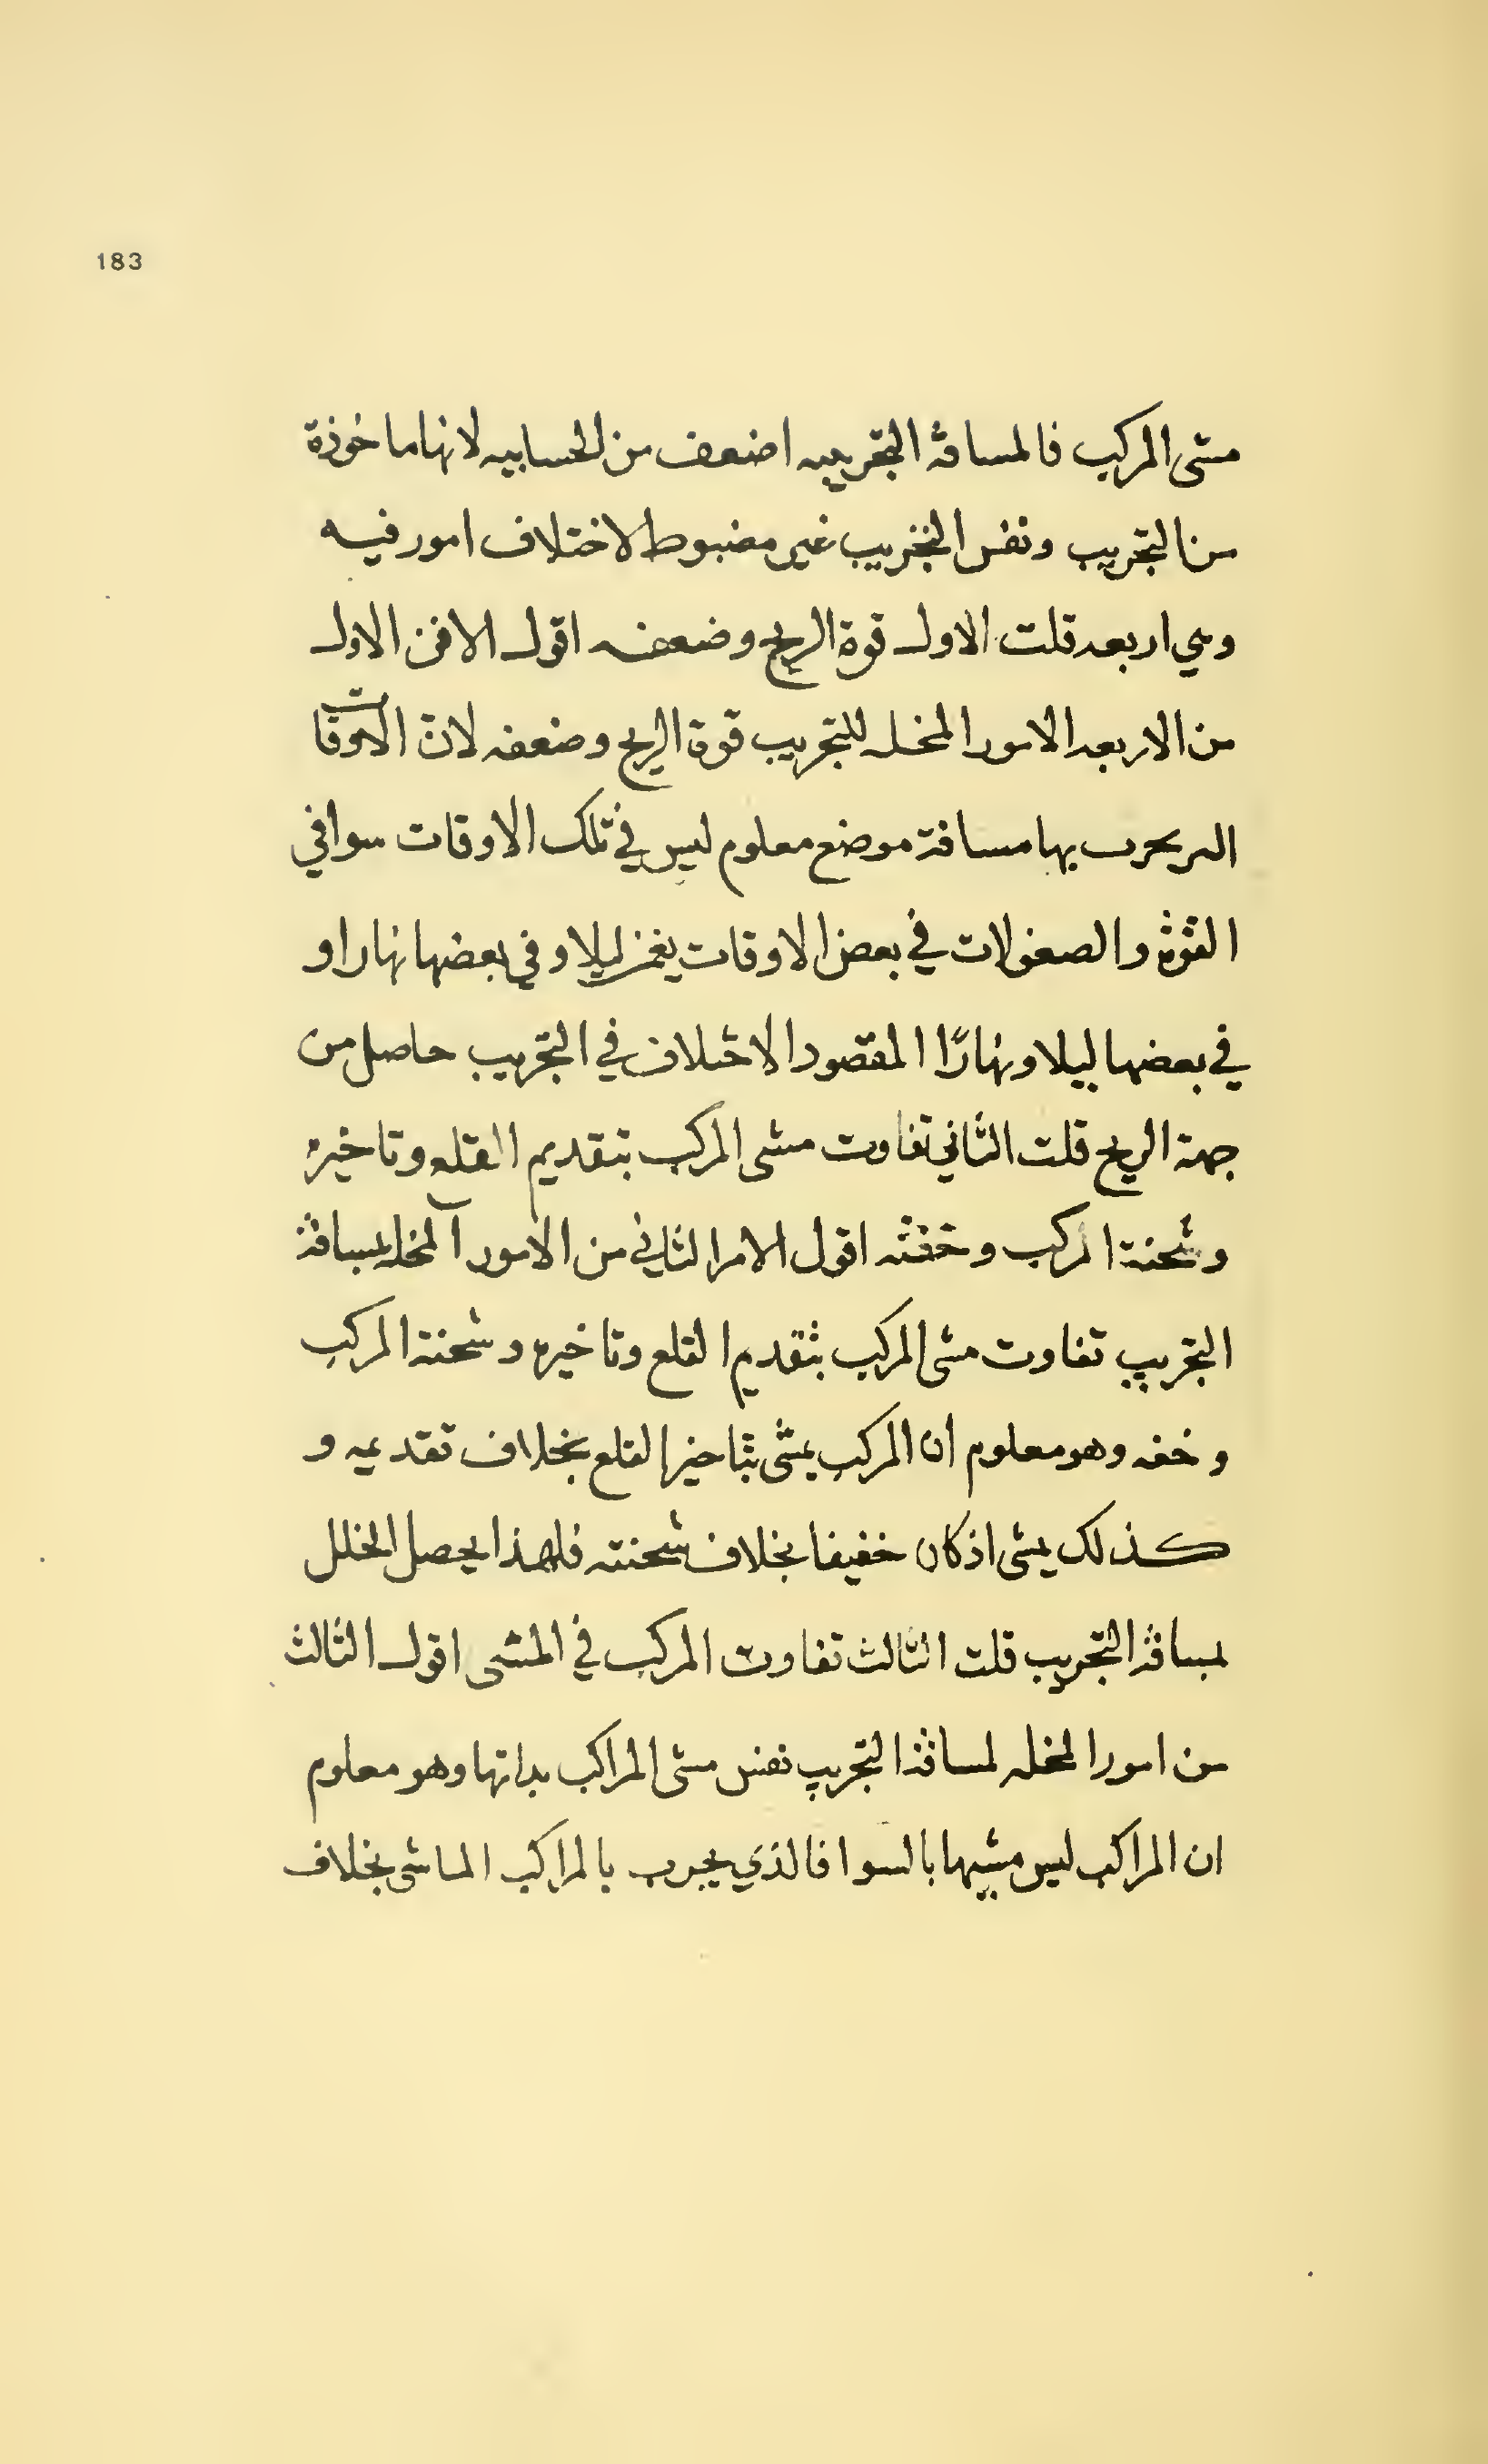 183
مشى المركب فالمسافة التجريبيه اضعف من الحسابيه لانها ماخوذة
من التجريب ونفس التجريب غير مضبوط لاختلاف امور فيه
وهي اربعه قلت الاول قوة الريح وضعفه اقول الاول
من الاربعه الامور المخله للتجريب قوة الريح وضعفه لانّ الاوقات
التي يجرب بها مسافة موضع معلوم ليس في تلك الاوقات سوا في
القوة والصغولات في بعض الاوقات يغمز ليلا وفي بعضها نهارا و
في بعضها ليلا ونهارًا المقصود الاختلاف في التجريب حاصل من
جهة الريح قلت الثاني تفاوت مشى المركب بتقديم القلع وتاخيره
وشحنة المركب وخفته اقول الامر الثاني من الامور المخله لمسافة
التجريب تفاوت مشى المركب بتقديم القلع وتاخيره وشحنة المركب
وخفه وهو معلوم ان المركب يمشى بتاخير القلع بخلاف تقديمه و
كذلك يمشى اذ كان خفيفا بخلاف شحنته فلهذا يحصل الخلل
لمسافة التجريب قلت الثالث تفاوت المركب في المشى اقول الثالث
من امور المخله لمسافة التجريب نفس مشى المراكب بداتها وهو معلوم
ان المراكب ليس مشيها بالسوا فالذي يجرب بالمراكب الماشى بخلاف